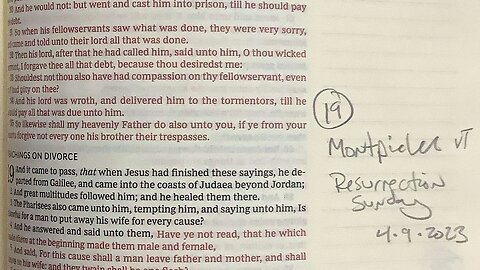 30 And he would not: but went and cast him into prison, till he should pay
debt.
31 So when his fellowservants saw what was done, they were very sorry,
came and told unto their lord all that was done.
Then his lord, after that he had called him, said unto him, O thou wicked
servant, I forgave thee all that debt, because thou desiredst me:
Shouldest not thou also have had compassion on thy fellowservant, even
had pity on thee?
34 And his lord was wroth, and delivered him to the tormentors, till he
should pay all that was due unto him.
35 So likewise shall my heavenly Father do also unto you, if ye from your
hearts forgive not every one his brother their trespasses.
TEACHINGS ON DIVORCE
19 And it came to pass, that when Jesus had finished these sayings, he de-
parted from Galilee, and came into the coasts of Judaea beyond Jordan;
2 And great multitudes followed him; and he healed them there.
3 The Pharisees also came unto him, tempting him, and saying unto him, Is
lawful for a man to put away his wife for every cause?
4 And he answered and said unto them, Have ye not read, that he which
made them at the beginning made them male and female,
5 And said, For this cause shall a man leave father and mother, and shall
to his wife: and they twain shall be one flesh?
19
Montpieler VT
Resurrection
Sunday
4.9.2023